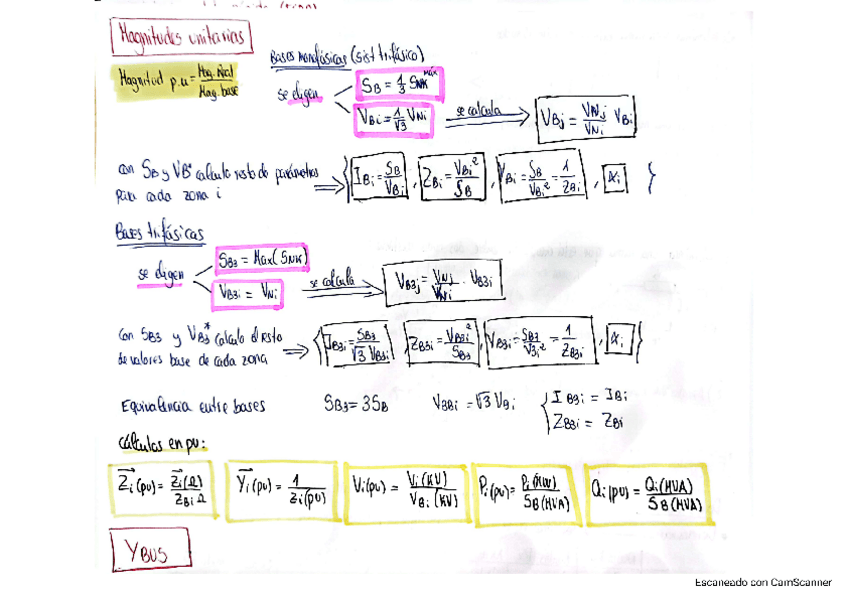 Magnitudes unitarias
Magnitud p.u = Mag. Real / Mag. base
Bases monofásicas (sist trifásico)
se eligen
S_B = 1/3 S_NK^máx
V_Bi = 1/√3 V_Ni
se calcula
V_Bj = V_Nj / V_Ni V_Bi
con S_B y V_B* calculo resto de parámetros
para cada zona i
{ I_Bi = S_B / V_Bi , Z_Bi = V_Bi² / S_B , Y_Bi = S_B / V_Bi² = 1 / Z_Bi , α_i }
Bases trifásicas
se eligen
S_B3 = Max(S_NK)
V_B3i = V_Ni
se calcula
V_B3j = V_Nj / V_Ni · V_B3i
Con S_B3 y V_B3* calculo el resto
de valores base de cada zona
{ I_B3i = S_B3 / √3 V_B3i , Z_B3i = V_B3i² / S_B3 , Y_B3i = S_B3 / V_3i² = 1 / Z_B3i , α_i }
Equivalencia entre bases
S_B3 = 3S_B
V_3Bi = √3 V_Bi
{ I_B3i = I_Bi
Z_B3i = Z_Bi
Cálculos en pu:
Z_i (pu) = Z_i (Ω) / Z_Bi Ω
Y_i (pu) = 1 / Z_i (pu)
V_i (pu) = V_i (KV) / V_Bi (KV)
P_i (pu) = P_i (MW) / S_B (MVA)
Q_i (pu) = Q_i (MVA) / S_B (MVA)
Y_BUS
Escaneado con CamScanner